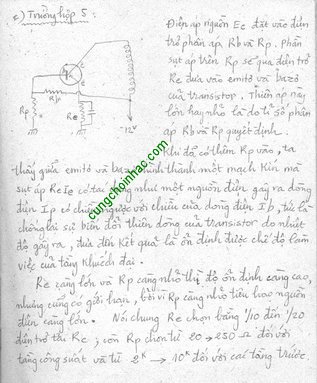 c) Trường hợp 5:
Điện áp nguồn Ec đặt vào điện
trở phân áp Rb và Rp. Phần
sụt áp trên Rp sẽ qua điện trở
Re đưa vào emitơ và bazơ
của transistor. Thiên áp này
lớn hay nhỏ là do tỉ số phân
áp Rb và Rp quyết định.
Khi đã có thêm Rp vào, ta
thấy giữa emitơ và bazơ hình thành một mạch kín mà
sụt áp ReIe có tác dụng như một nguồn điện gây ra dòng
điện Ip có chiều ngược với chiều của dòng điện Ib, tức là
chống lại sự biến đổi thiên dòng của transistor do nhiệt
độ gây ra, đưa đến kết quả là ổn định được chế độ làm
việc của tầng khuếch đại.
Re càng lớn và Rp càng nhỏ thì độ ổn định càng cao,
nhưng cũng có giới hạn, bởi vì Rp càng nhỏ tiêu hao nguồn
điện càng lớn. Nói chung Re chọn bằng 1/10 đến 1/20
điện trở tải Rc; còn Rp chọn từ 20 → 250 Ω đối với
tầng công suất và từ 2K → 10K đối với các tầng trước.
Rp
Rb
Re
C
b
e
-12V
cungchoinhac.com